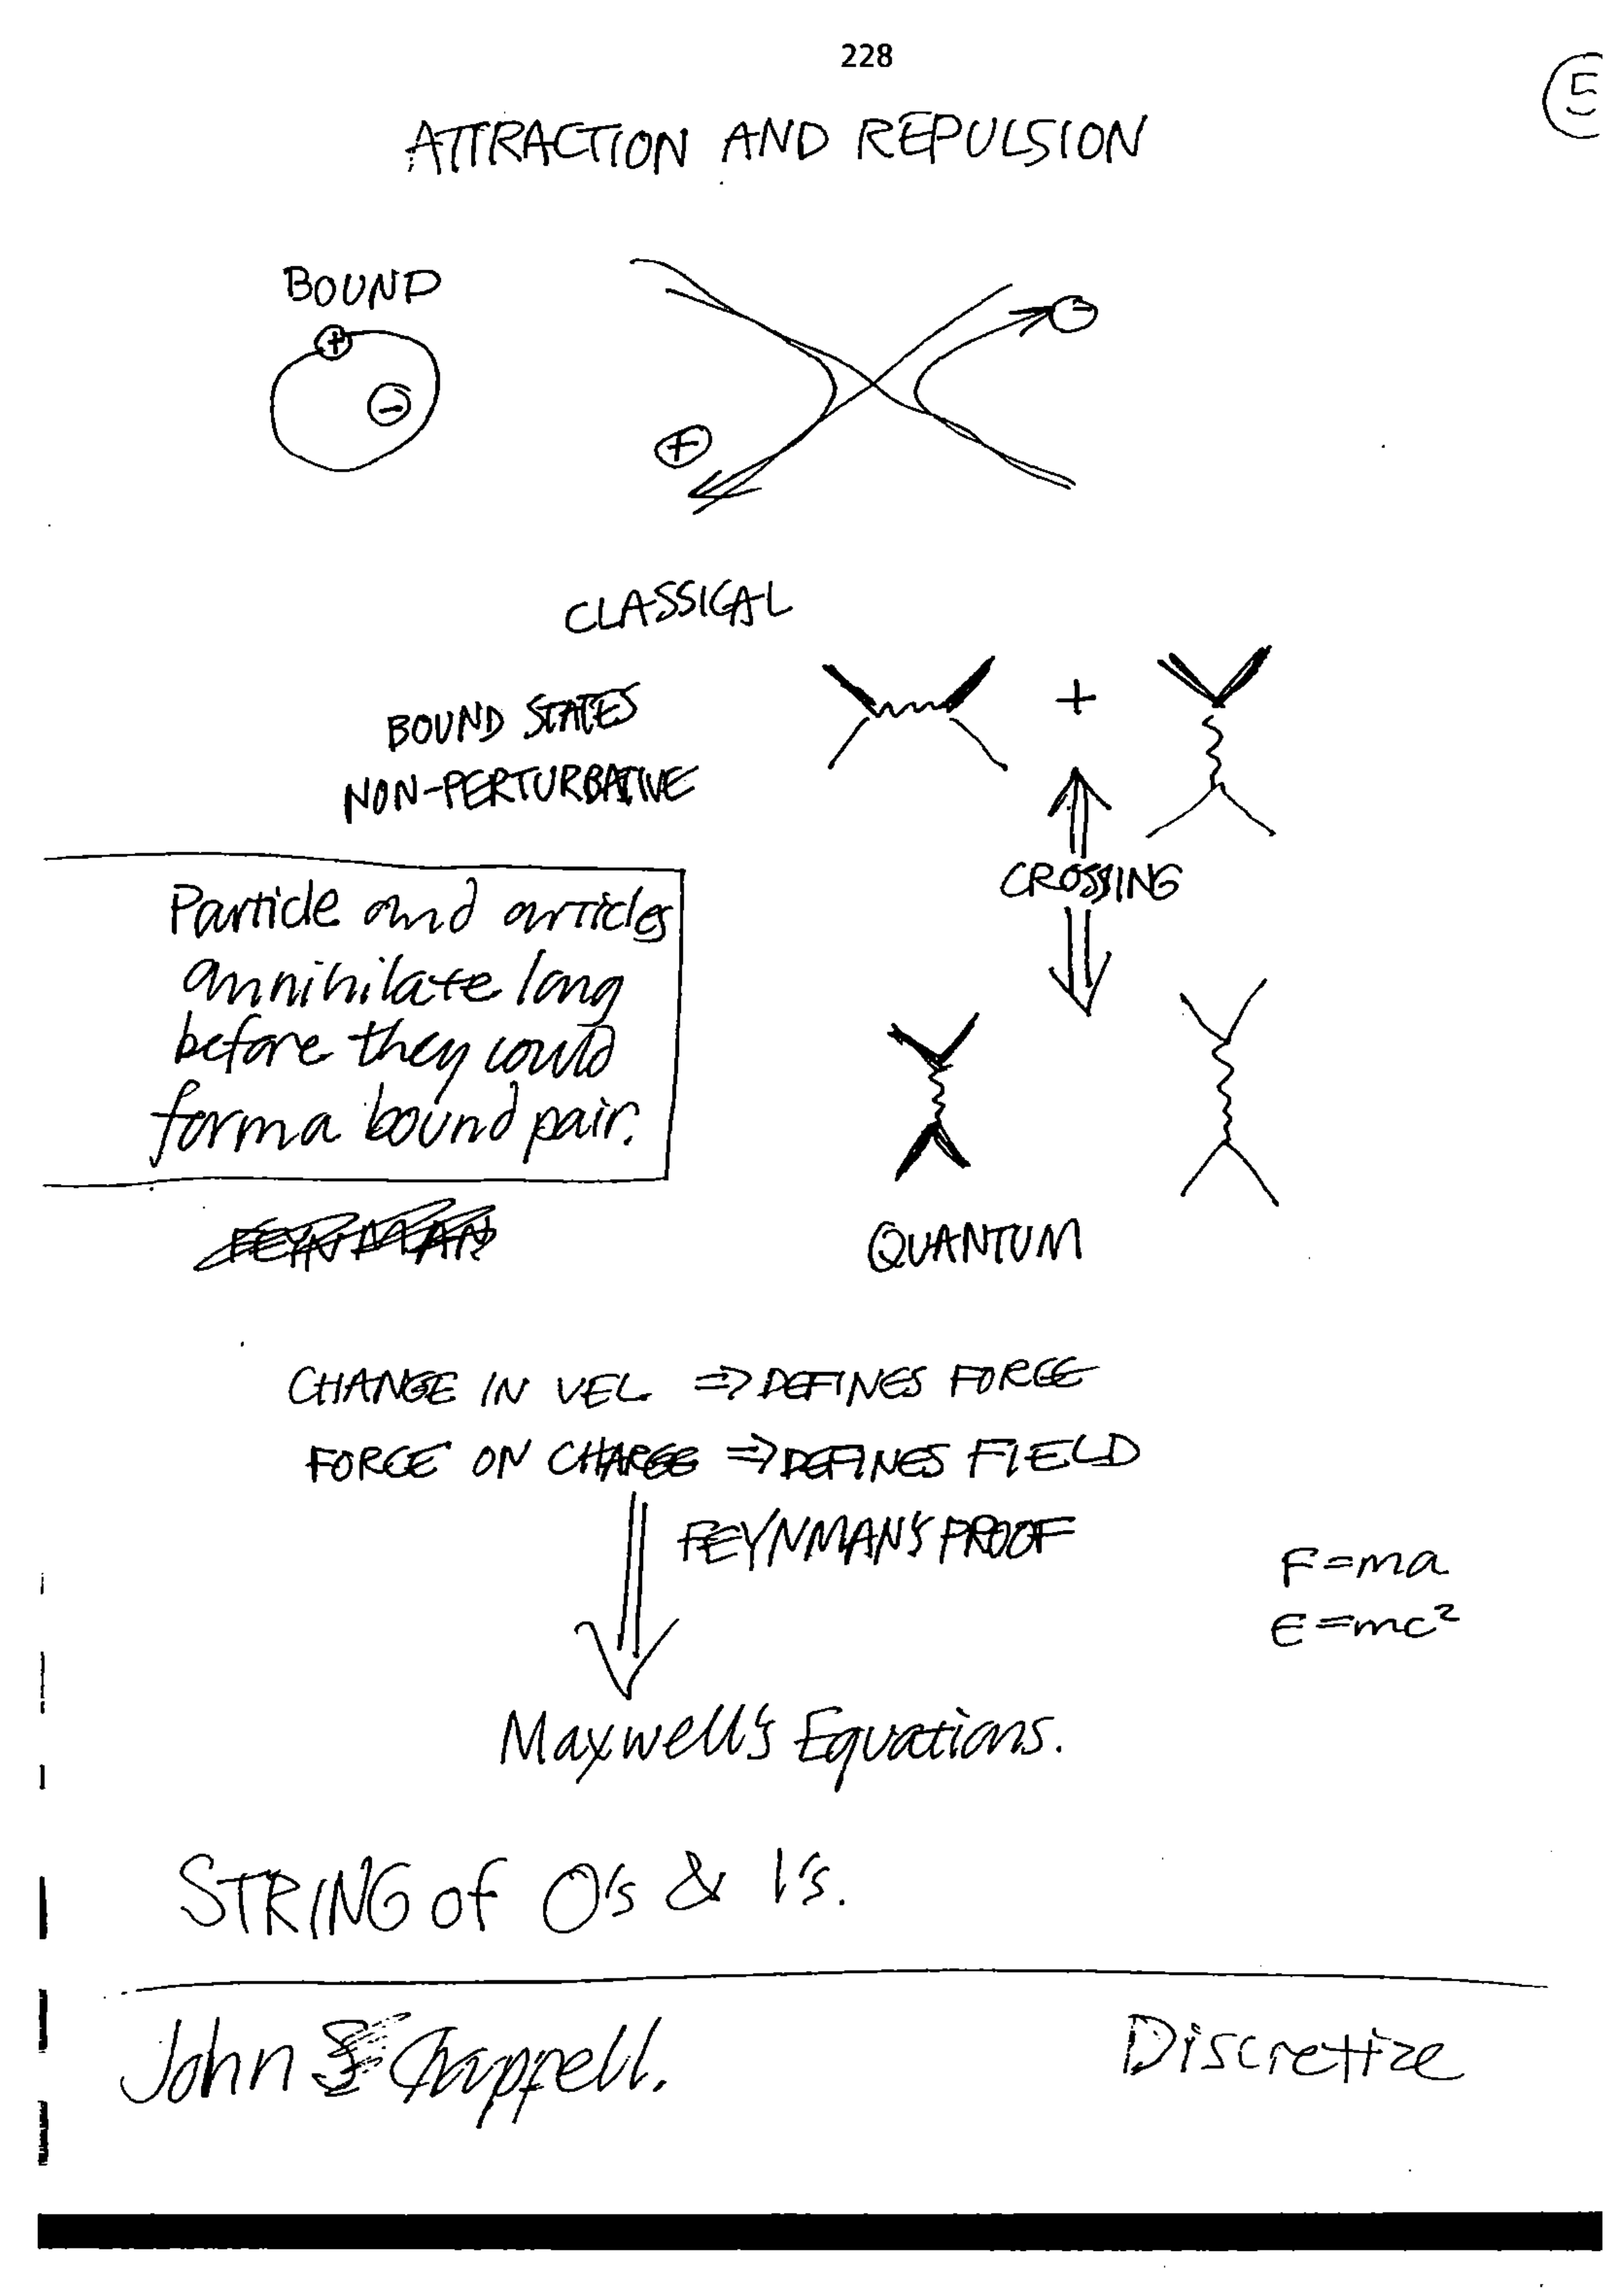 228
5
ATTRACTION AND REPULSION
BOUND
+
-
-
+
CLASSICAL
BOUND STATES
NON-PERTURBATIVE
+
CROSSING
Particle and articles
annihilate long
before they could
form a bound pair.
FEYNMAN
QUANTUM
CHANGE IN VEL ⇒ DEFINES FORCE
FORCE ON CHARGE ⇒ DEFINES FIELD
FEYNMAN'S PROOF
F=ma
E=mc²
Maxwell's Equations.
STRING of O's & 1's.
John Chappell.
Discretize